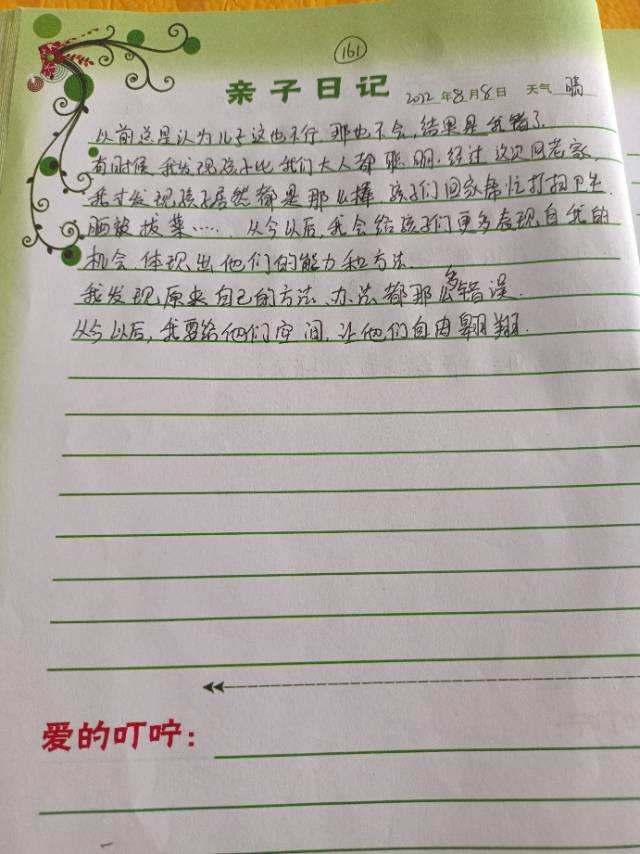 161
亲子日记 2022年8月8日 天气 晴
以前总是认为儿子这也不行,那也不会,结果是我错了.
有时候,我发现孩子比我们大人都聪明.经过这次回老家,
我才发现孩子居然都是那么棒,孩子们回家帮忙打扫卫生
晒被拔菜……,从今以后,我会给孩子们更多表现自我的
机会.体现出他们的能力和方法.
我发现原来自己的方法、办法都那么多错误.
从今以后,我要给他们空间,让他们自由翱翔.
爱的叮咛: